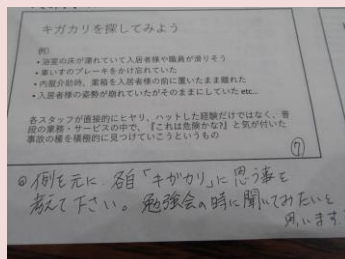 キガカリを探してみよう
例）
・浴室の床が濡れていて入居者様や職員が滑りそう
・車いすのブレーキをかけ忘れていた
・内服介助時、薬箱を入居者様の前に置いたまま離れた
・入居者様の姿勢が崩れていたがそのままにしていた etc...
各スタッフが直接的にヒヤリ、ハットした経験だけではなく、普
段の業務・サービスの中で、『これは危険かな?』と気が付いた
事故の種を積極的に見つけていこうというもの
⑦
◎例を元に、各自「キガカリ」に思う事を
考えて下さい。勉強会の時に聞いてみたいと
思います